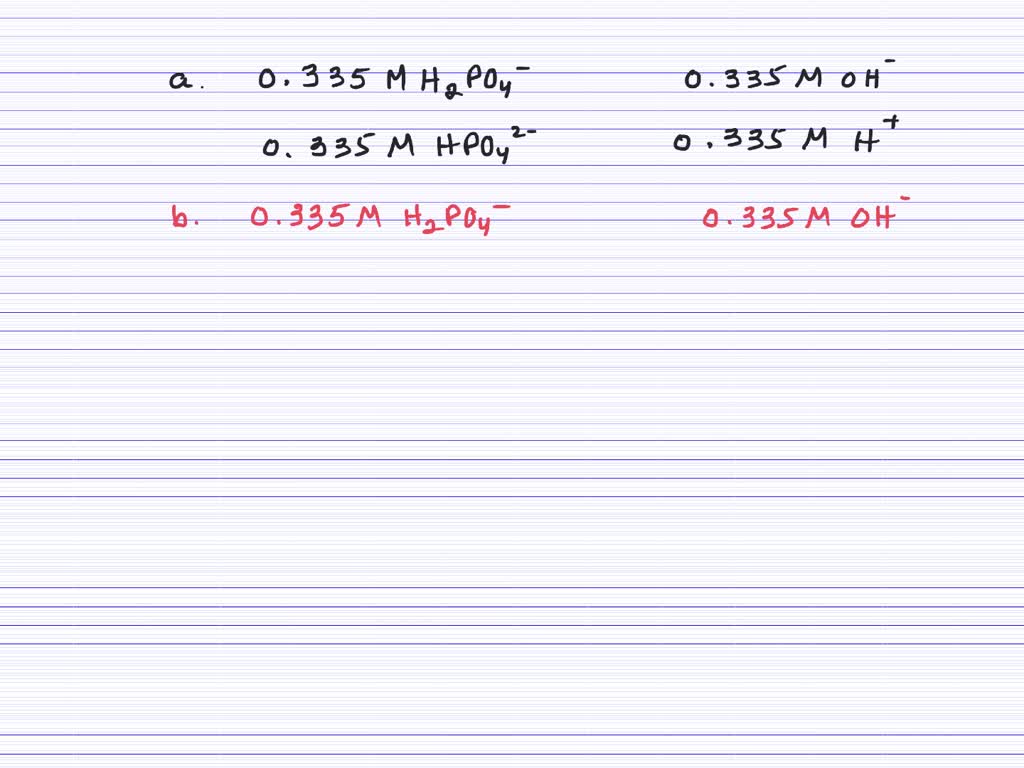 a. 0.335 M H₂PO₄⁻ 0.335 M OH⁻
0.335 M HPO₄²⁻ 0.335 M H⁺
b. 0.335 M H₂PO₄⁻ 0.335 M OH⁻